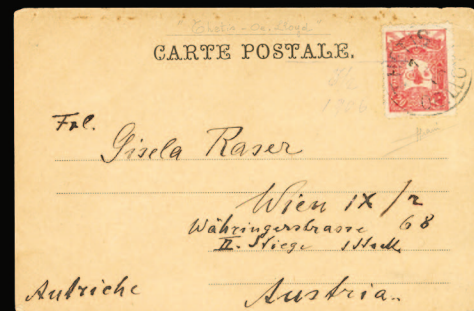 CARTE POSTALE.
Frl.
Gisela Raser
Wien IX/2
Währingerstrasse 68
II. Stiege
Autriche Austria..